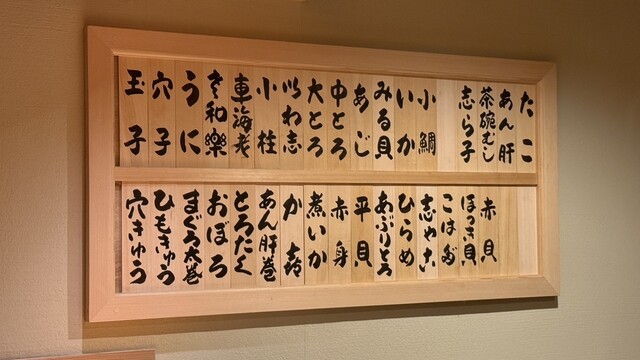 たこ
あん肝
茶碗むし
志ら子
小鯛
いか
みる貝
あじ
中とろ
大とろ
いわ志
小柱
車海老
き和樂
うに
穴子
玉子
赤貝
ほっき貝
こはだ
志ゃこ
ひらめ
あぶりとろ
平貝
赤身
煮いか
あん肝巻
とろたく
おぼろ
まぐろ太巻
ひもきゅう
穴きゅう